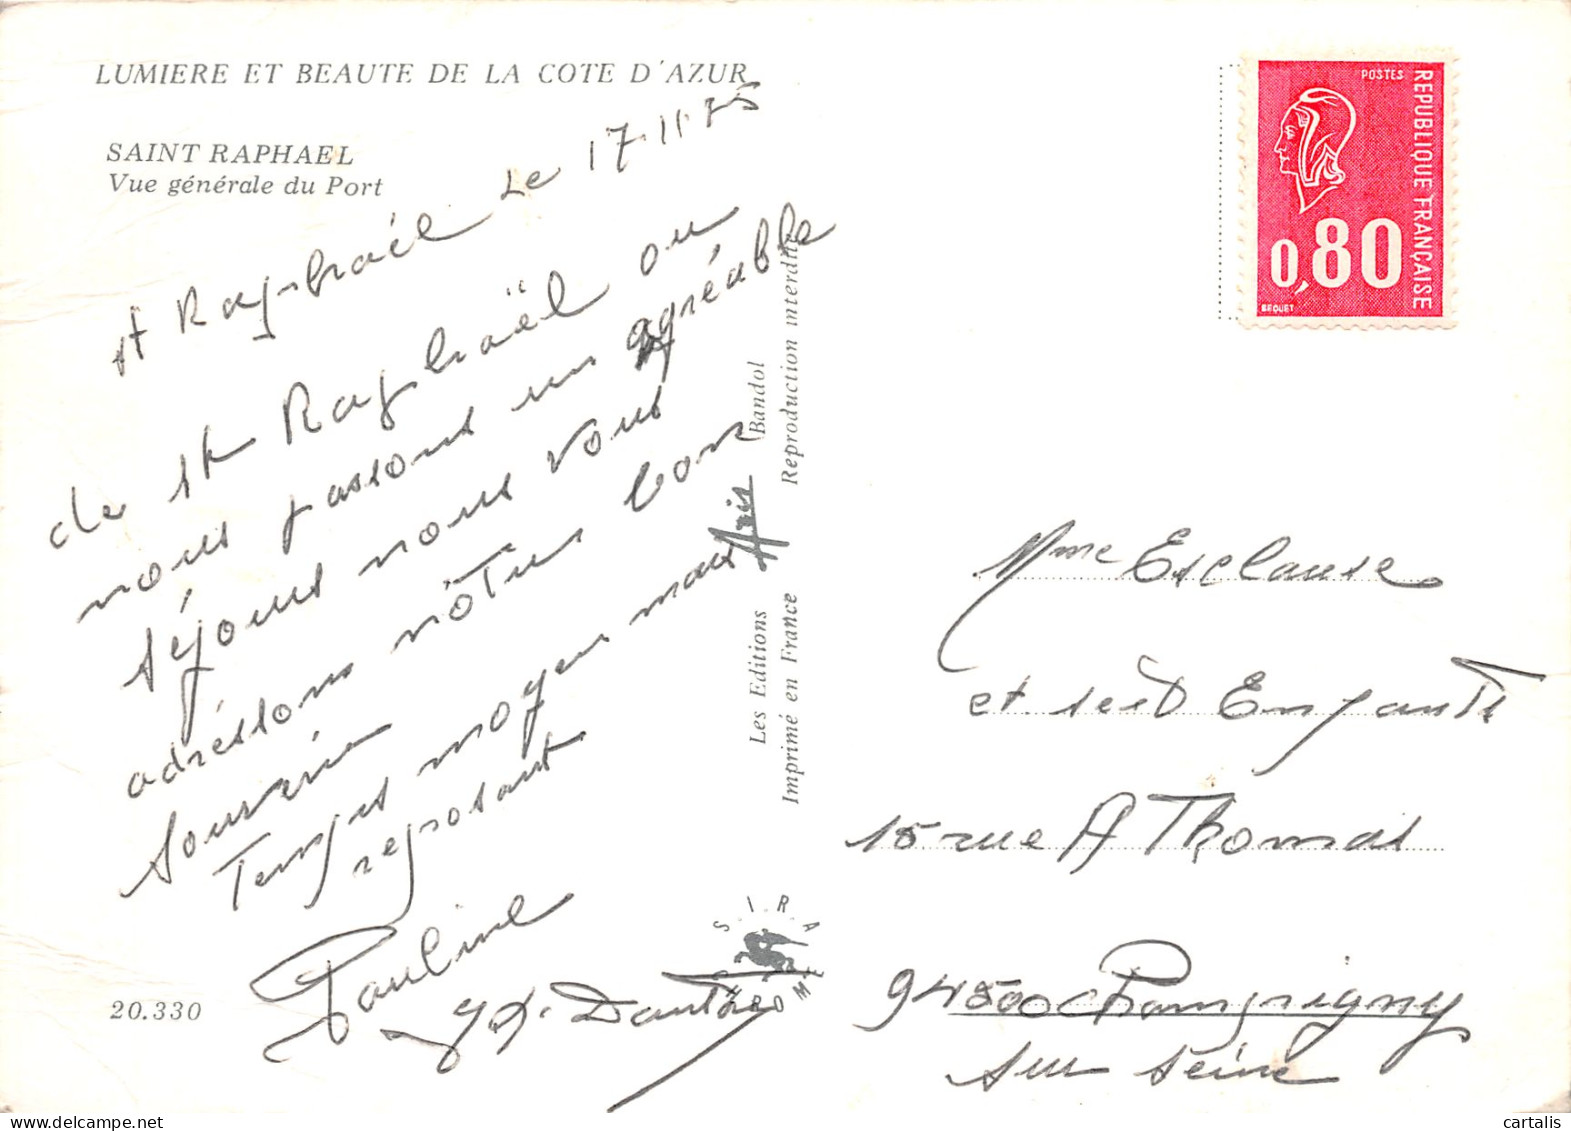 LUMIERE ET BEAUTE DE LA COTE D'AZUR
SAINT RAPHAEL
Vue générale du Port
St Raphaël Le 17.11.75
de St Raphaël ou
nous passons un agréable
séjour nous vous
adressons nôtre bon
souvenir
Temps moyen mais
reposant
Pauline
20.330
Les Editions Aris Bandol
Imprimé en France Reproduction interdite
SIRA
POSTES
REPUBLIQUE FRANÇAISE
0,80
BEQUET
Mme Esclause
et ses Enfants
15 rue A Thomas
94500 Champigny
sur Seine
cartalis